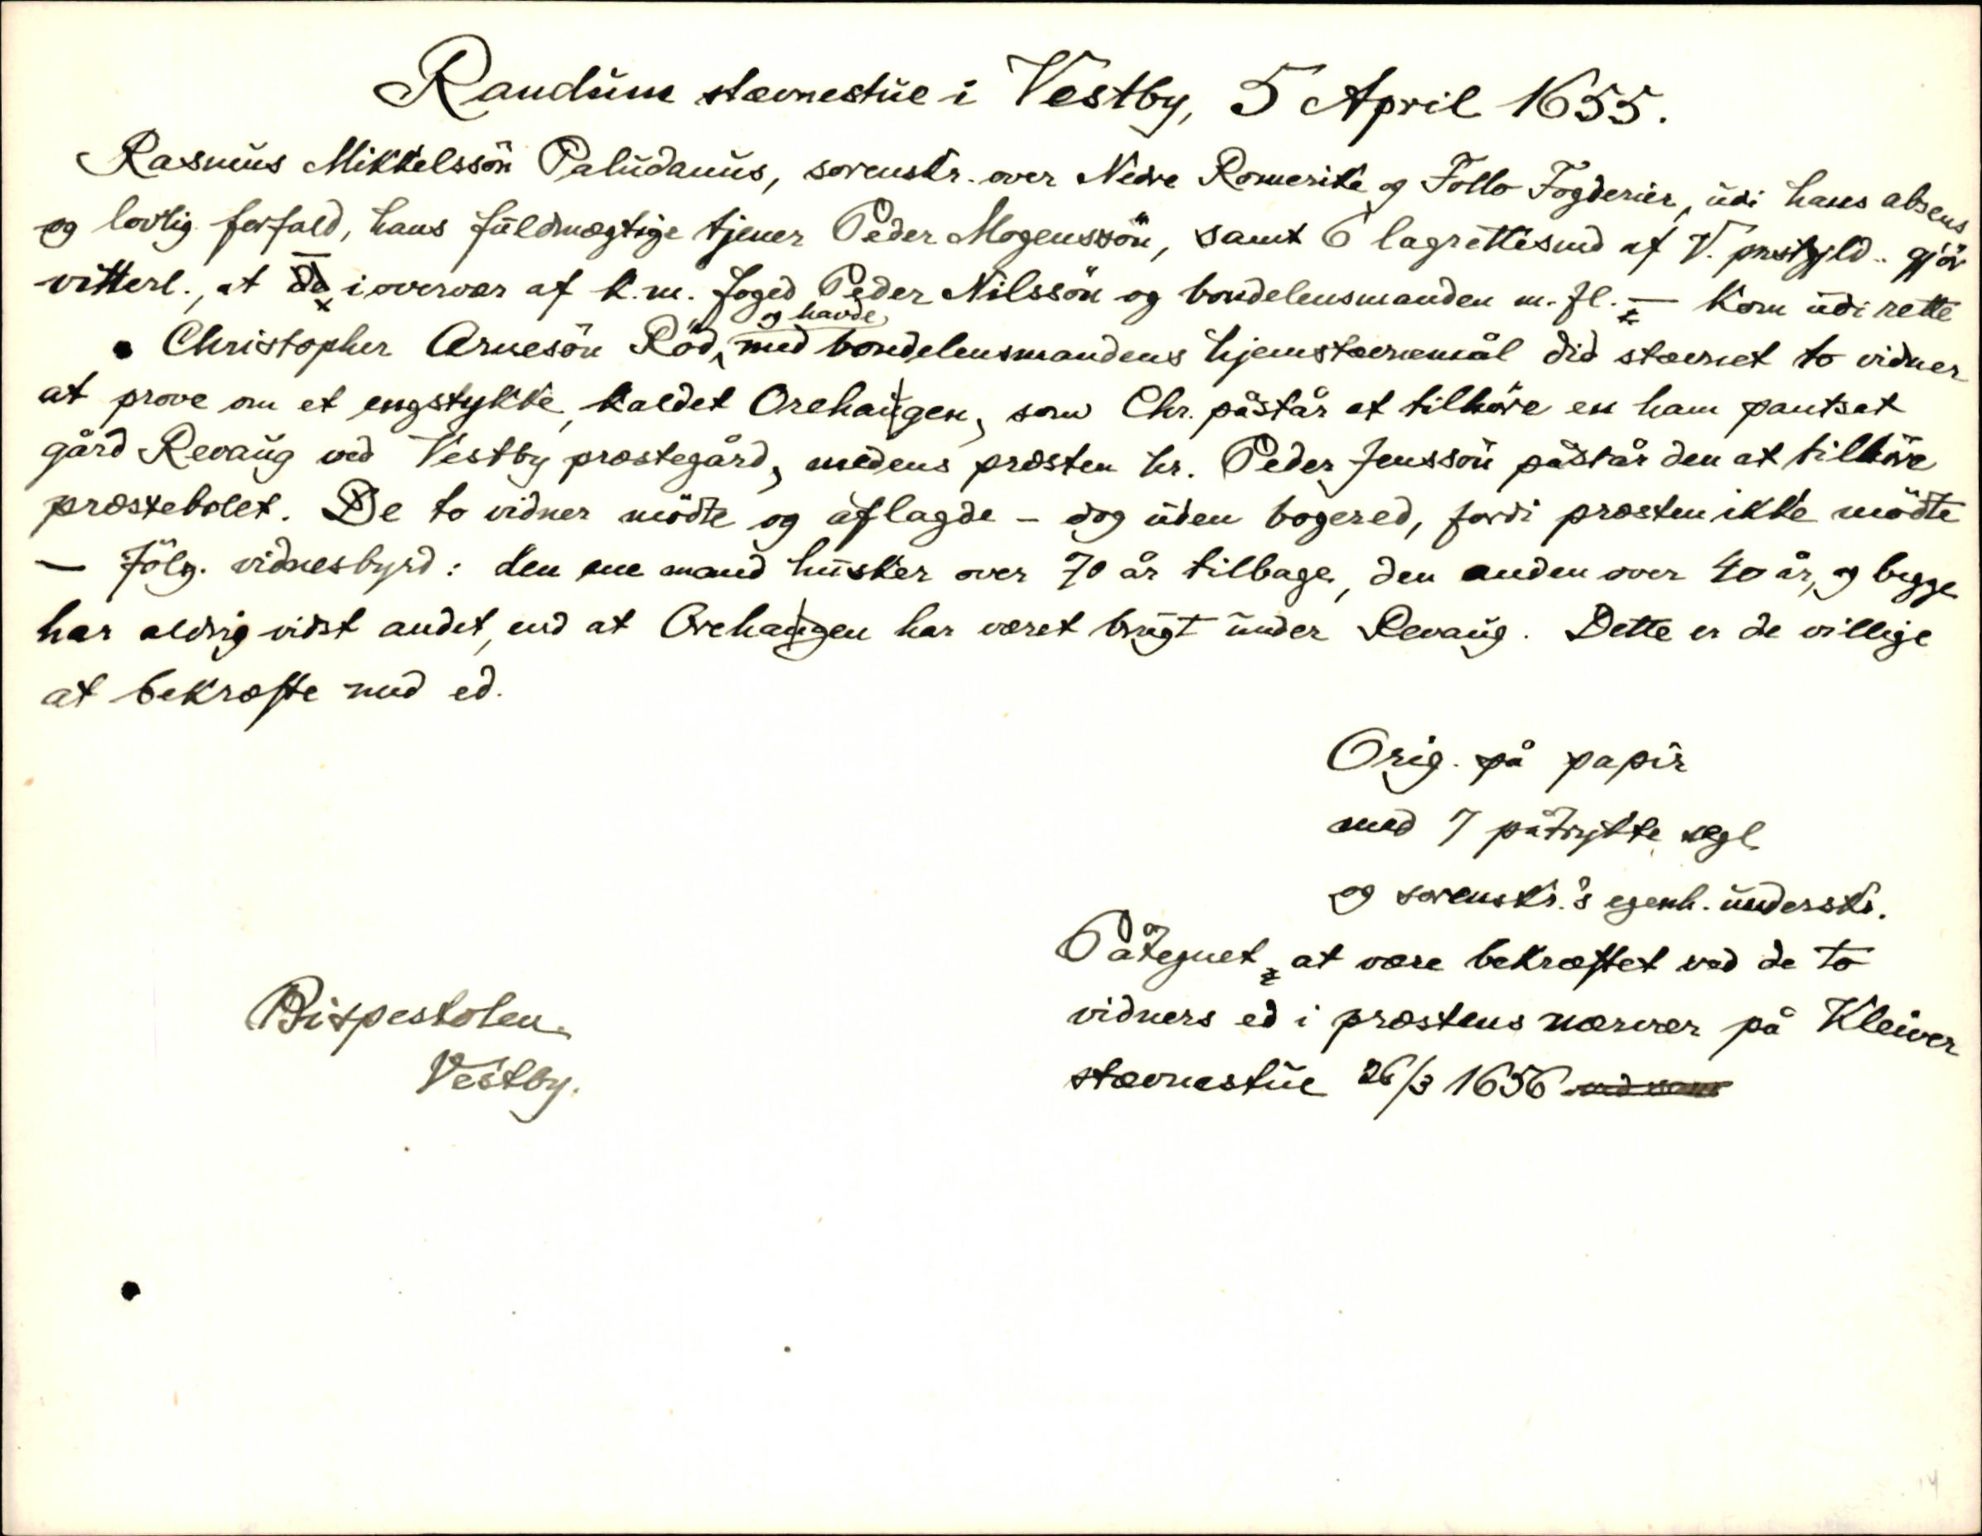 Randum stævnestue i Vestby, 5 April 1655.
Rasmus Mikkelssön Paludanus, sorenskr. over Nedre Romerike og Follo Fogderier, udi hans absens
og lovlig forfald, hans fuldmægtige tjener Peder Mogenssön, samt 6 lagrettesmd af V. prestgjld. gjör
vitterl., at da i overvær af k.m. foged Peder Nilssön og bondelensmanden m.fl. — kom udi rette
Christopher Arnesön Röd, og havde med bondelensmandens hjemstævnemål did stævnet to vidner
at prove om et engstykke, kaldet Orehaugen, som Chr. påstår at tilhöre en ham pantsat
gård Revaug ved Vestby præstegård, medens præsten hr. Peder Jenssön påstår den at tilhöre
præstebolet. De to vidner mödte og aflagde – dog uden bogered, fordi præsten ikke mödte
— fölg. vidnesbyrd: den ene mand husker over 70 år tilbage, den anden over 40 år, og begge
har aldrig vidst andet, end at Orehaugen har været brugt under Revaug. Dette er de villige
at bekræfte med ed.
Orig. på papir
med 7 påtrykte segl
og sorenskr.'s egenh. underskr.
Påtegnet at være bekræftet ved de to
vidners ed i præstens nærvær på Kleiver
stævnestue 26/3 1656
Bispestolen.
Vestby.
14